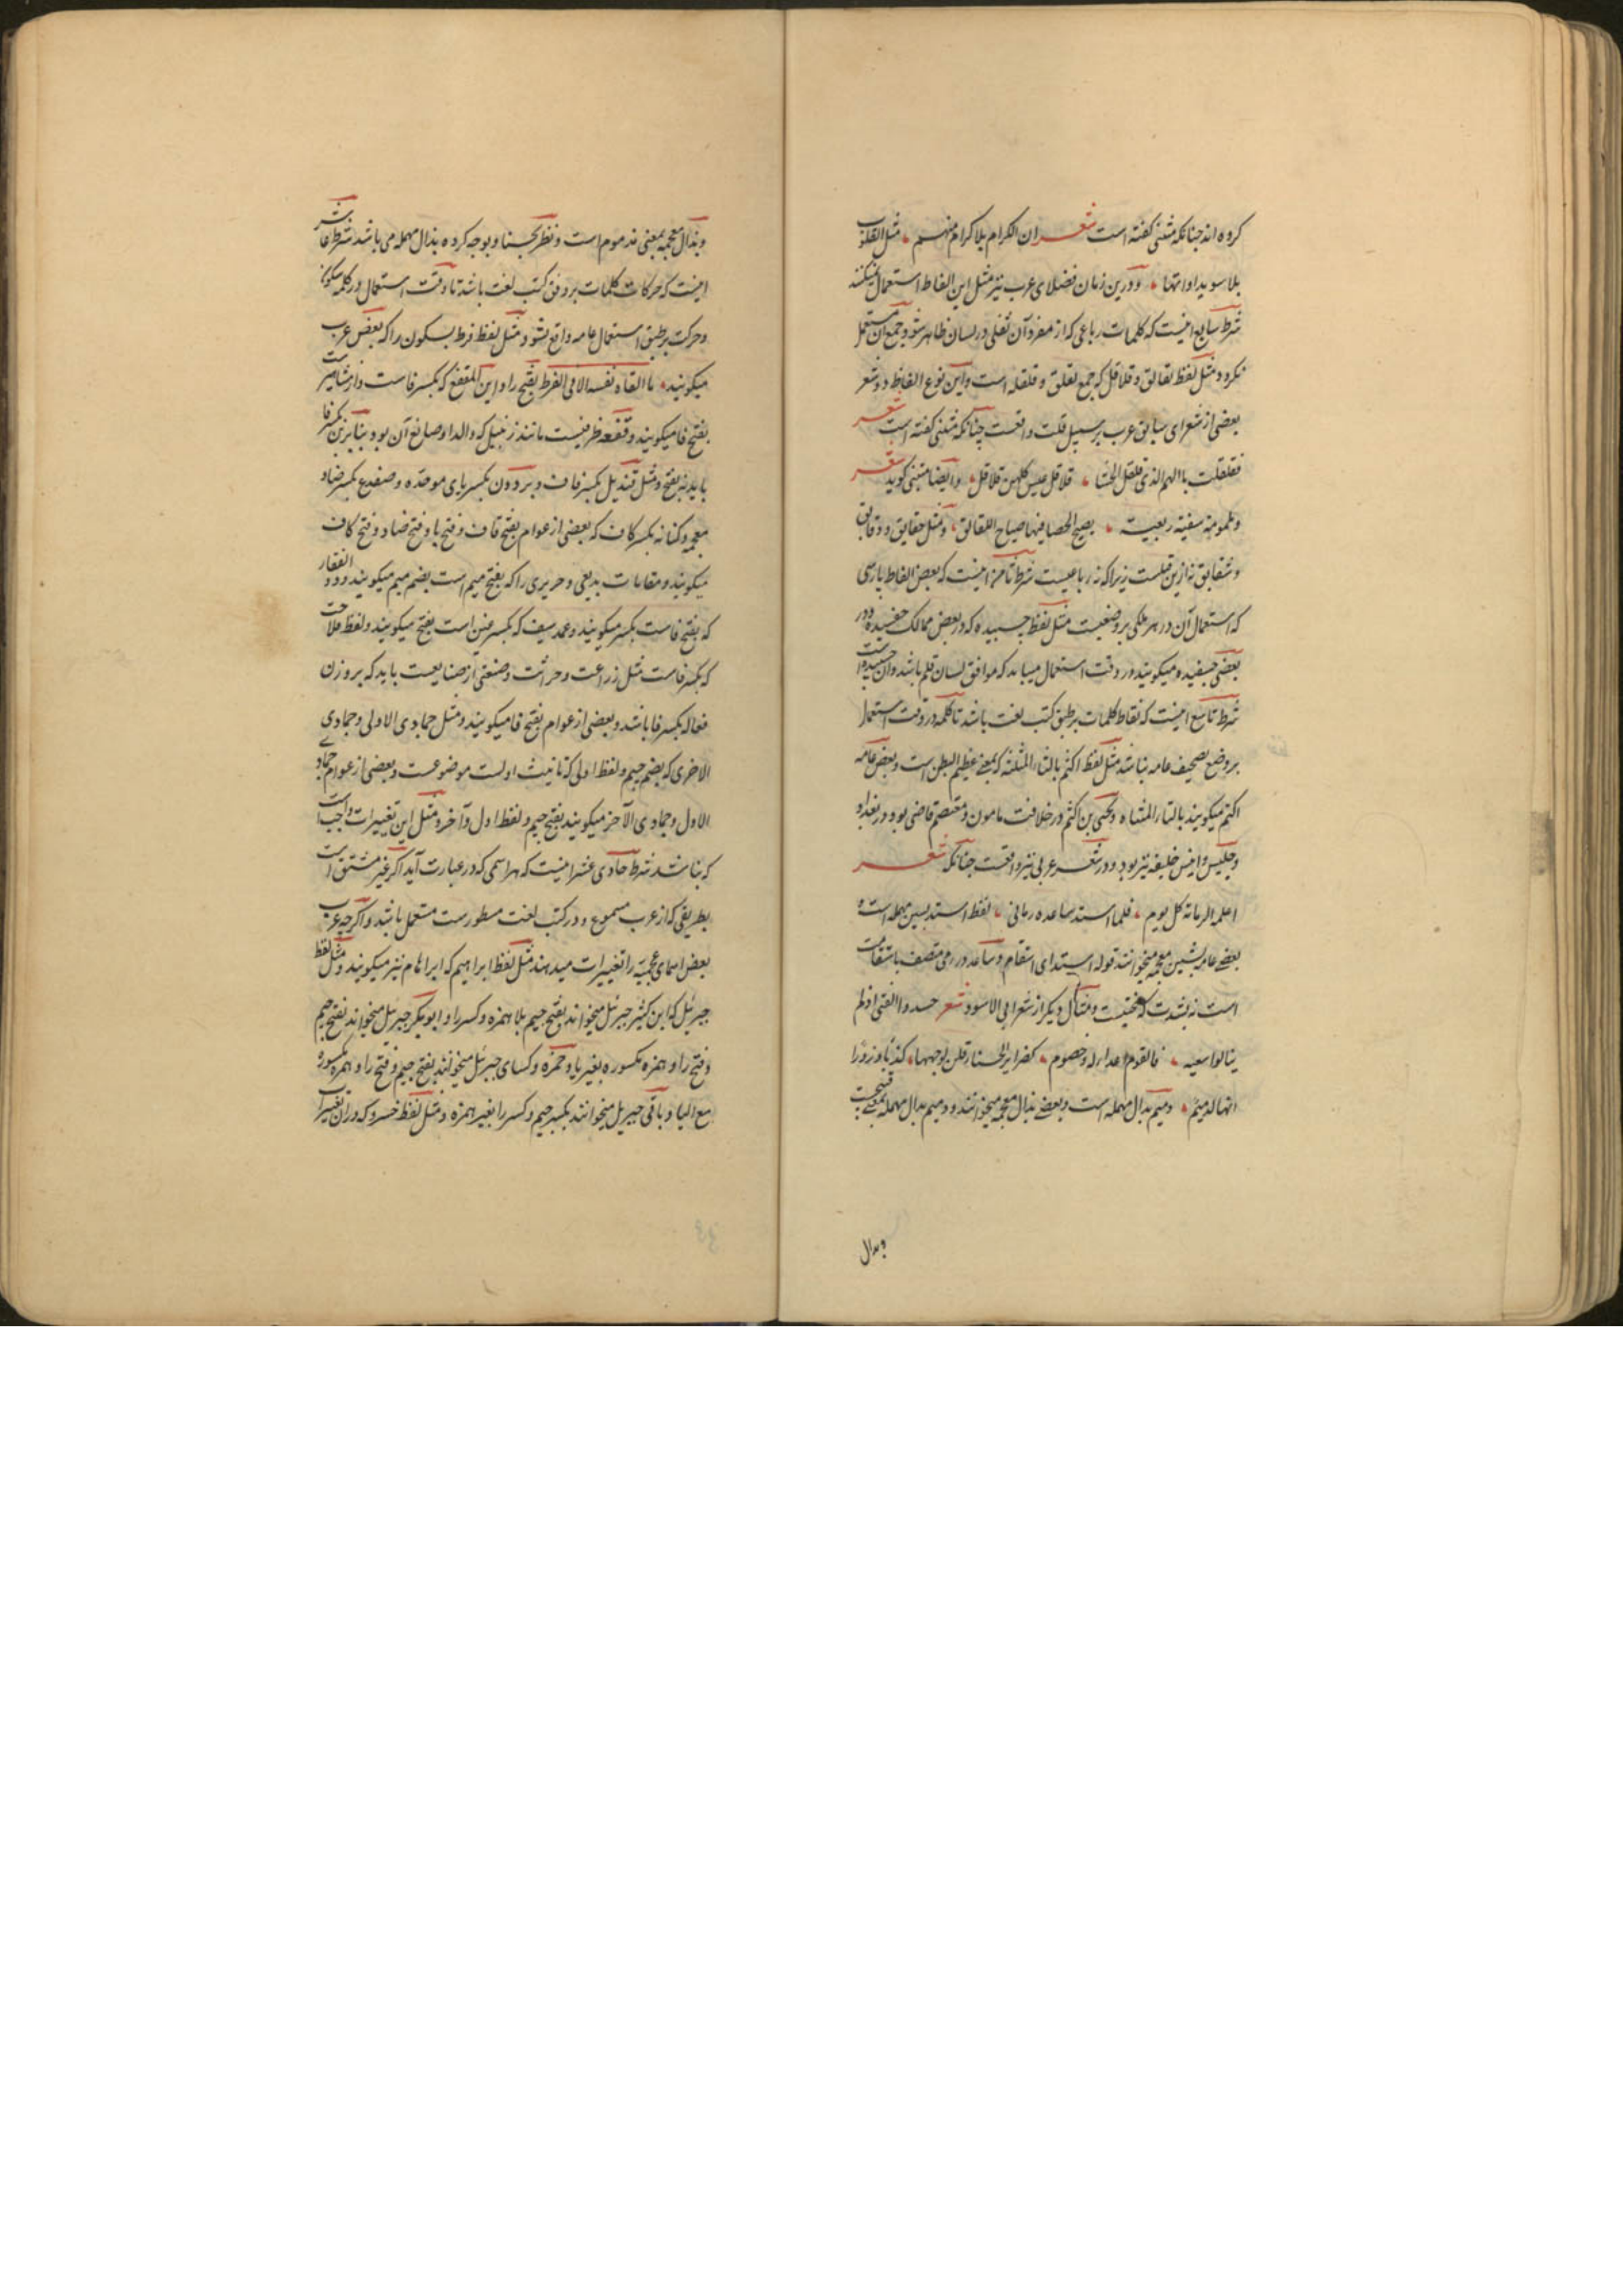 کرده اند چنانکه متنبی کفته است شعر ان الکرام بلا کرام منهم مثل القلوب
بلا سویداواتها ودرین زمان فضلای عرب نیز مثل این الفاظ استعمال نمیکنند
شرط سابع اینست که کلمات رباعی که از مفرد آن ثقلی در لسان ظاهر شود جمع آن مستعمل
نکردد مثل لفظ لقالق وقلاقل که جمع لقلق وقلقله است واین نوع الفاظ در شعر
بعضی از شعرای سابق عرب بر سبیل قلت واقعست چنانکه متنبی کفته است شعر
فقلقلت بالهم الذی قلقل الحشا قلاقل عیس کلهن قلاقل وایضا متنبی کوید شعر
وملمومة سیفیة ربعیة یصیح الحصا فیها صیاح اللقالق ومثل حقایق ودقایق
وشقایق نه ازین قبلست زیرا که نه رباعیست شرط ثامن اینست که بعض الفاظ پارسی
که استعمال آن در هر ملکی بر وضعیست مثل لفظ چسبیده که در بعض ممالک چفسیده ودر
بعضی چسفیده میکویند در وقت استعمال میباید که موافق لسان قلم باشد وآن چسبیده است
شرط تاسع اینست که نقاط کلمات بر طبق کتب لغت باشد تا کلمه در وقت استعمال
بر وضع تصحیف عامه نباشد مثل لفظ اکثم بالثاء المثلثه که بمعنی عظیم البطن است وبعض عامه
اکتم میکویند بالتاء المثناه ویحیی بن اکثم در خلافت مامون ومعتصم قاضی بود در بغداد
وجلیس وانیس خلیفه نیز بود ودر شعر عربی نیز واقعست چنانکه شعر
اعلمه الرمایة کل یوم فلما استد ساعده رمانی لفظ استد بسین مهمله است و
بعضی عامه بشین معجمه میخوانند قوله استد ای استقام وساعد در رمی متصف باستقامت
است نه بشدت که سختیست ومثال دیکر از شعر ابی الاسود شعر حسدوا الفتی اذ لم
ینالوا سعیه فالقوم اعداء له وخصوم کضرایر الحسناء قلن لوجهها کذبا وزورا
انها لدمیم ودمیم بدال مهمله است وبعضی بذال معجمه میخوانند ودمیم بدال مهمله بمعنی قبیحست
وبدال
وبذال معجمه بمعنی مذموم است ونظر بحسنا وبوجه کرده بدال مهمله می باشد شرط عاشر
اینست که حرکات کلمات بر وفق کتب لغت باشد تا وقت استعمال در کلمه سکون
وحرکت بر طبق استعمال عامه واقع نشود مثل لفظ فرط بسکون را که بعض عرب
میکویند ما القاه نفسه الا فی الفرط بفتح را وابن المقفع که بکسر فاست واز مشاهیر است
بفتح فا میکویند وقفعه ظرفیست مانند زنبیل که والد او صانع آن بود بنابرین بکسر فا
باید نه بفتح ومثل قندیل بکسر قاف وبرذون بکسر بای موحده وضفدع بکسر ضاد
معجمه وکنانه بکسر کاف که بعضی از عوام بفتح قاف وفتح با وفتح ضاد وفتح کاف
میکویند ومقامات بدیعی وحریری را که بفتح میم است بضم میم میکویند وذو الفقار
که بفتح فاست بکسر میکویند وغمد سیف که بکسر غین است بفتح میکویند ولفظ فلاحت
که بکسر فاست مثل زراعت وحراثت وصنعتی از صنایعست باید که بر وزن
فعاله بکسر فا باشد وبعضی از عوام بفتح فا میکویند ومثل جمادی الاولی وجمادی
الاخری که بضم جیم ولفظ اولی که تانیث اولست موضوعست وبعضی از عوام جمادی
الاول وجمادی الآخر میکویند بفتح جیم ولفظ اول وآخر ومثل این تغییرات واجب است
که نباشد شرط حادی عشر اینست که هر اسمی که در عبارت آید اکر غیر مشتق است
بطریقی که از عرب مسموع ودر کتب لغت مسطورست مستعمل باشد واکرچه عرب
بعض اسمای عجمیه را تغییرات میدهند مثل لفظ ابراهیم که ابراهام نیز میکویند ومثل لفظ
جبرئیل که ابن کثیر جبریل میخواند بفتح جیم بلا همزه وکسر را وابوبکر جبرئل میخواند بفتح جیم
وفتح را وهمزه مکسوره بغیر یا وحمزه وکسای جبرئیل میخوانند بفتح جیم وفتح را وهمزه مکسوره
مع الیا وباقی جبریل میخوانند بکسر جیم وکسر را بغیر همزه ومثل لفظ خسرو که در ان تغییرات